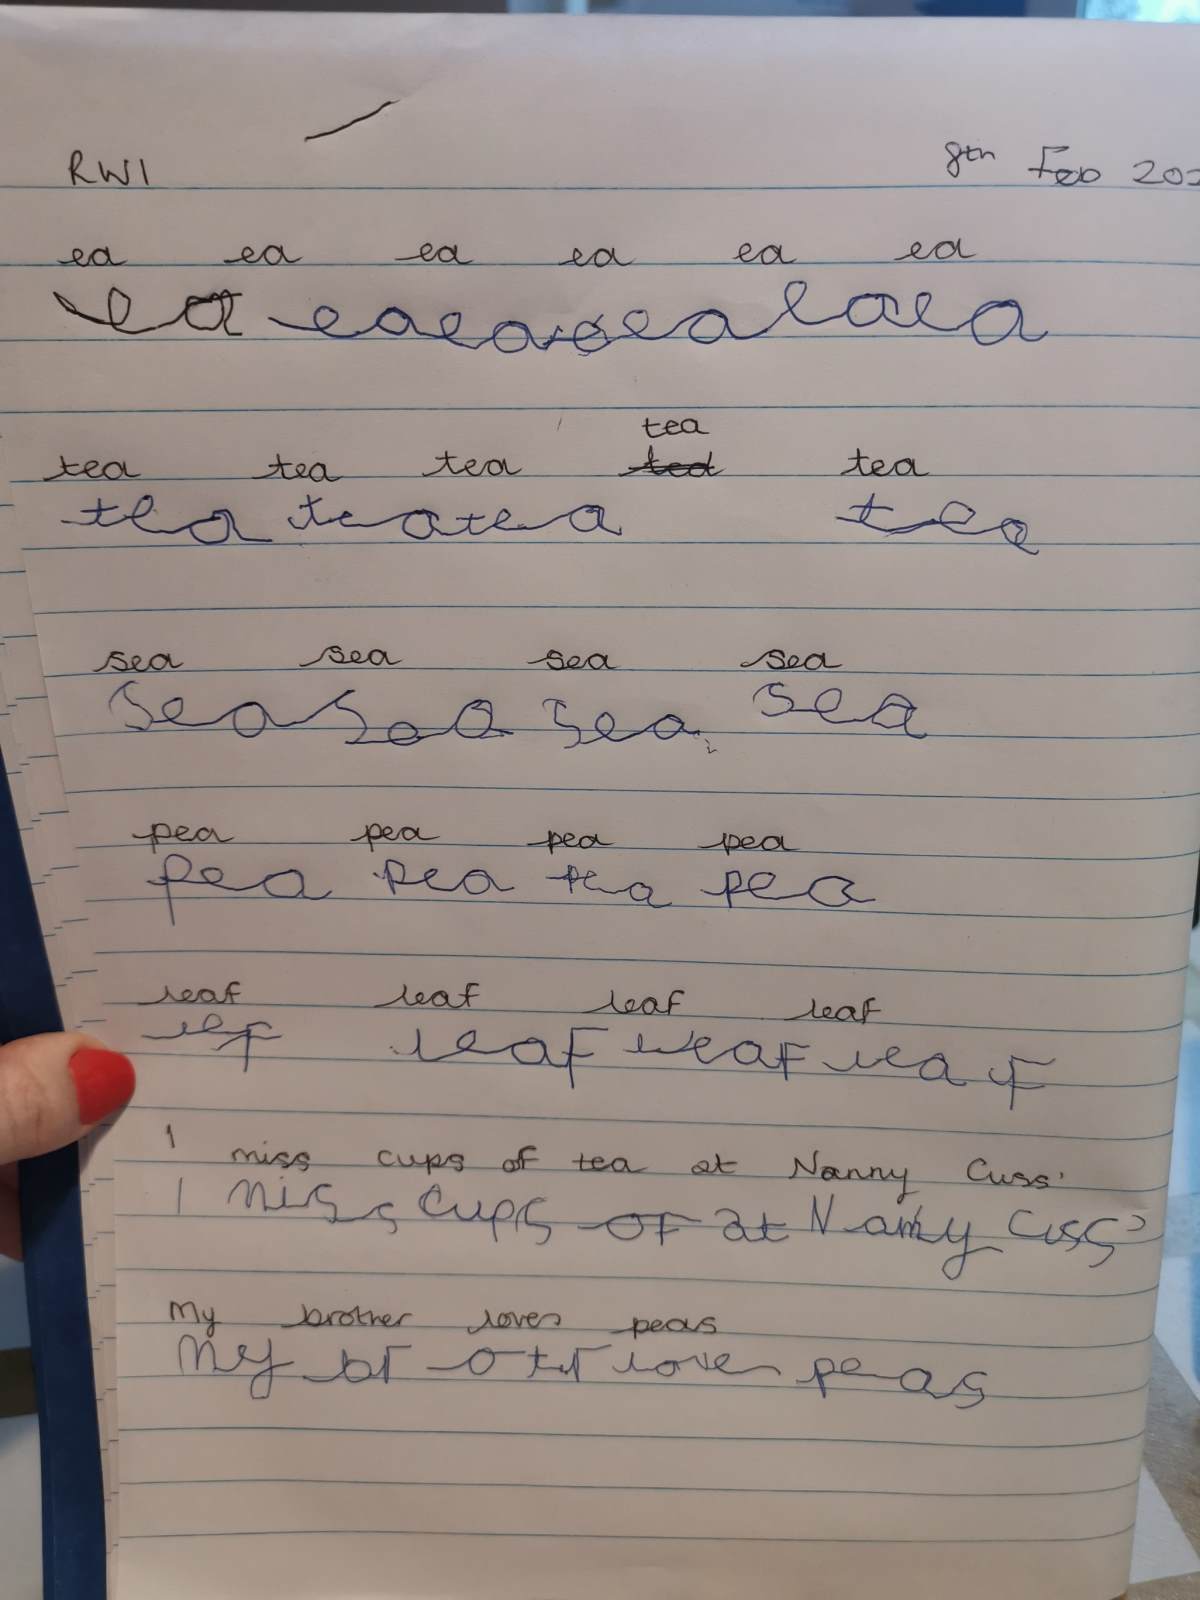 RWI 8th Feb 202
ea ea ea ea ea ea
ea ea ea ea ea ea
tea
tea tea tea ted tea
tea tea tea tea
sea sea sea sea
sea sea sea sea
pea pea pea pea
pea pea pea pea
leaf leaf leaf leaf
lef leaf leaf leaf
I miss cups of tea at Nanny Cuss'
I miss cups of at Nanny Cuss'
My brother loves peas
My loves peas